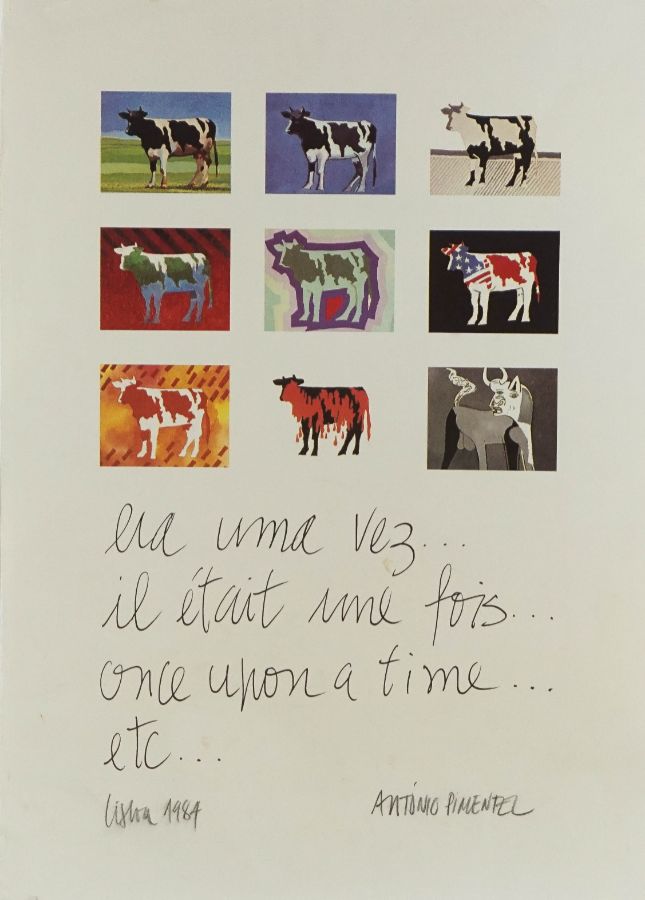 era uma vez...
il était une fois...
once upon a time...
etc...
Lisboa 1984
ANTÓNIO PIMENTEL